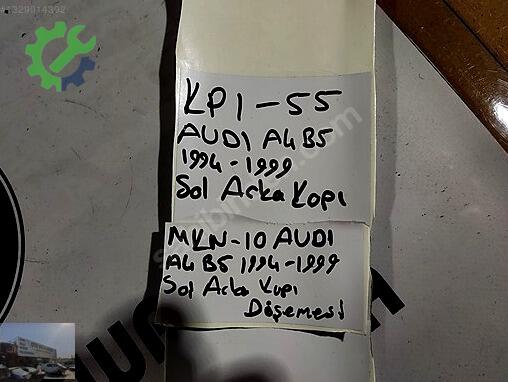 #1329014392
KPI-55
AUDI A4 B5
1994-1999
Sol Arka Kapı
MKN-10 AUDI
A4 B5 1994-1999
Sol Arka Kapı
Döşemesi